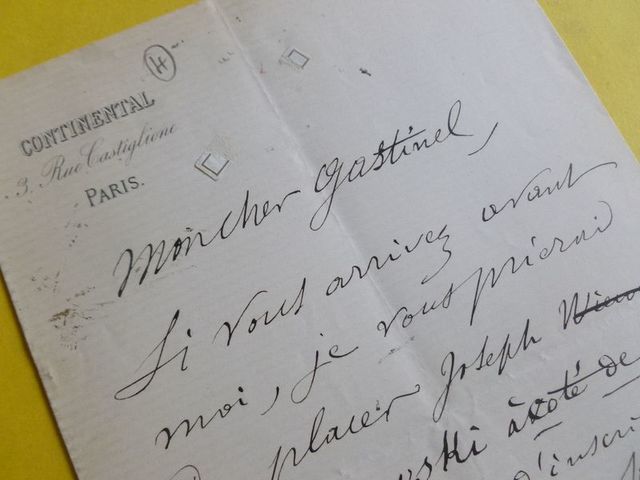 4
CONTINENTAL
3, Rue Castiglione
PARIS.
Mon cher Gastinel,
Si vous arrivez avant
moi, je vous prierai
placer Joseph
à coté de
d'inscri